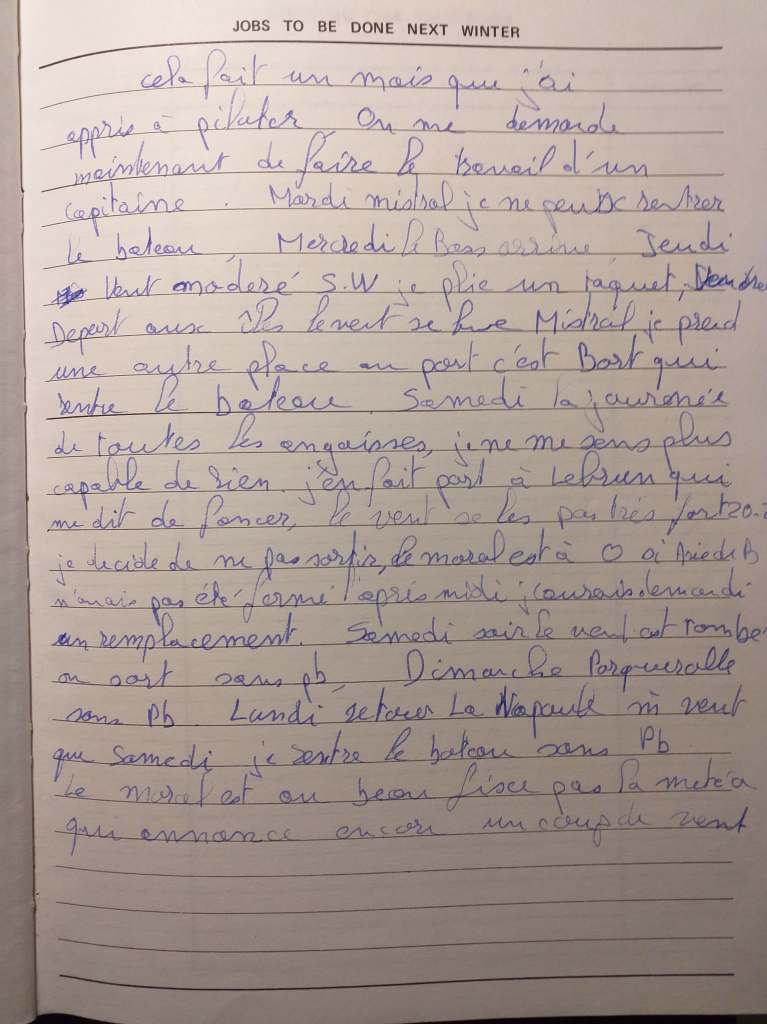 JOBS TO BE DONE NEXT WINTER
cela fait un mois que j'ai
appris à piloter, On me demande
maintenant de faire le travail d'un
capitaine. Mardi mistral je ne peux rentrer
le bateau, Mercredi le Boss arrive, Jeudi
Vent modéré S.W je plie un taquet,
Depart aux îles le vent se leve Mistral je prend
une autre place au port c'est Bart qui
rentre le bateau. Samedi la journée
de toutes les angoisses, je ne me sens plus
capable de rien. j'en fait part à Lebrun qui
me dit de foncer, le vent se les pas très fort 20-
je decide de ne pas sortir, le moral est à 0 si
n'avais pas été fermé l'après midi j'aurais demandé
un remplacement. Samedi soir le vent est tombé
on sort sans pb, Dimanche Porquerolle
sans Pb. Lundi retour La Napoule m vent
que Samedi je rentre le bateau sans Pb
Le moral est au beau fixe pas la météo
qui annonce encore un coup de vent